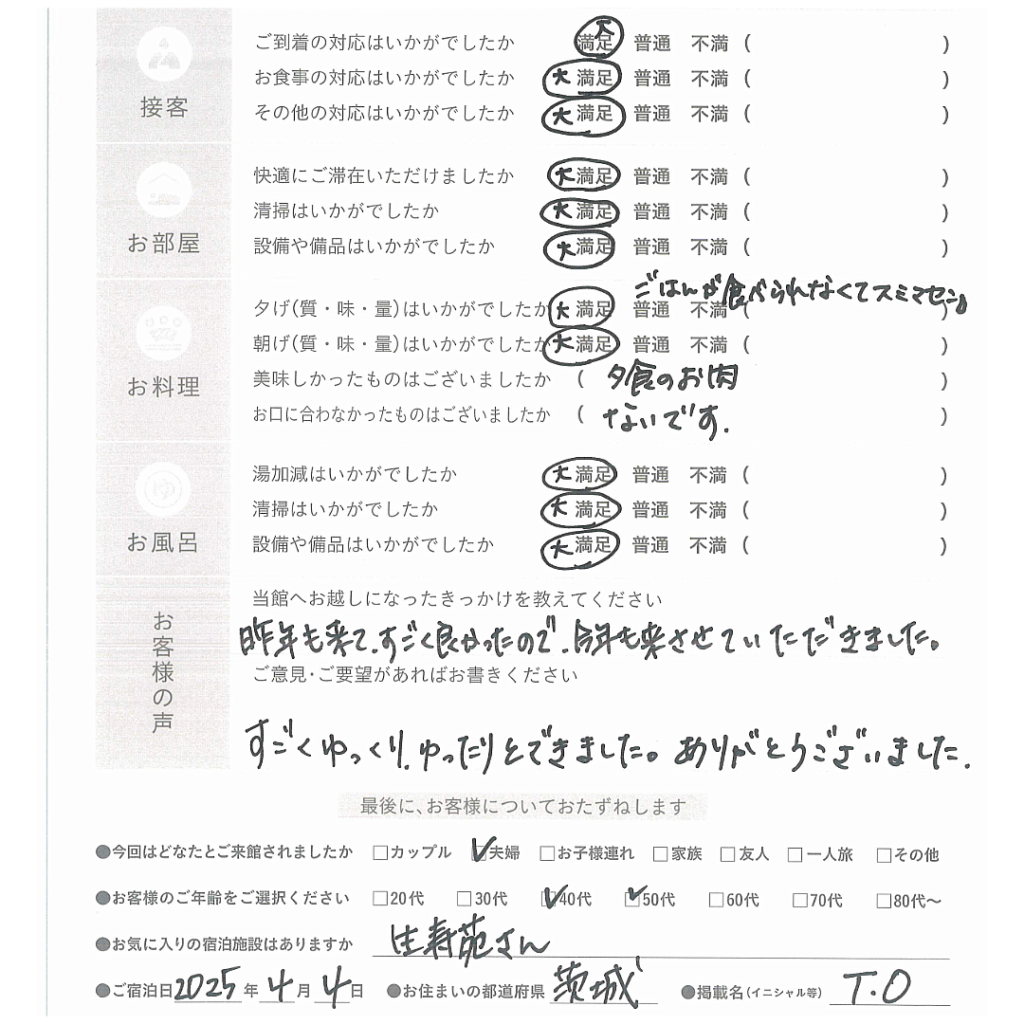 接客
ご到着の対応はいかがでしたか 大満足 普通 不満 ( )
お食事の対応はいかがでしたか 大満足 普通 不満 ( )
その他の対応はいかがでしたか 大満足 普通 不満 ( )
お部屋
快適にご滞在いただけましたか 大満足 普通 不満 ( )
清掃はいかがでしたか 大満足 普通 不満 ( )
設備や備品はいかがでしたか 大満足 普通 不満 ( )
お料理
ごはんが食べられなくてスミマセン。
夕げ(質・味・量)はいかがでしたか 大満足 普通 不満 ( )
朝げ(質・味・量)はいかがでしたか 大満足 普通 不満 ( )
美味しかったものはございましたか ( 夕食のお肉 )
お口に合わなかったものはございましたか ( ないです. )
ゆ
お風呂
湯加減はいかがでしたか 大満足 普通 不満 ( )
清掃はいかがでしたか 大満足 普通 不満 ( )
設備や備品はいかがでしたか 大満足 普通 不満 ( )
お客様の声
当館へお越しになったきっかけを教えてください
昨年も来て、すごく良かったので、今年も来させていただきました。
ご意見・ご要望があればお書きください
すごくゆっくり、ゆったりとできました。ありがとうございました.
最後に、お客様についておたずねします
●今回はどなたとご来館されましたか □カップル ☑夫婦 □お子様連れ □家族 □友人 □一人旅 □その他
●お客様のご年齢をご選択ください □20代 □30代 ☑40代 ☑50代 □60代 □70代 □80代〜
●お気に入りの宿泊施設はありますか 生寿苑さん
●ご宿泊日2025年4月4日 ●お住まいの都道府県 茨城 ●掲載名(イニシャル等) T.O